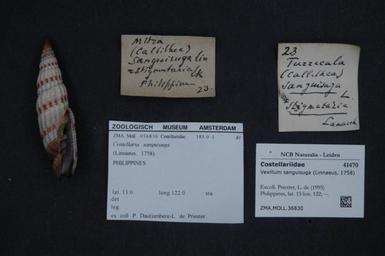 Mitra
(Callithea)
Sanguisuga Lin
= stigmataria Lk
Philippin.
23.
23
Turricula
(Callithea)
sanguisuga
L.
Stigmataria
Lamarck
ZOOLOGISCH MUSEUM AMSTERDAM
ZMA Moll. Costellariidae
Costellaria sanguisuga
(Linnaeus, 1758)
PHILIPPINES
lat. 13.0 long 122.0 sta.
det
leg.
ex coll P. Dautzenberg-L. de Priester
NCB Naturalis - Leiden
Costellariidae 41470
Vexillum sanguisuga (Linnaeus, 1758)
Ex coll. Priester, L. de (1995)
Philippines, lat. 13 lon. 122; --.
ZMA.MOLL.36830